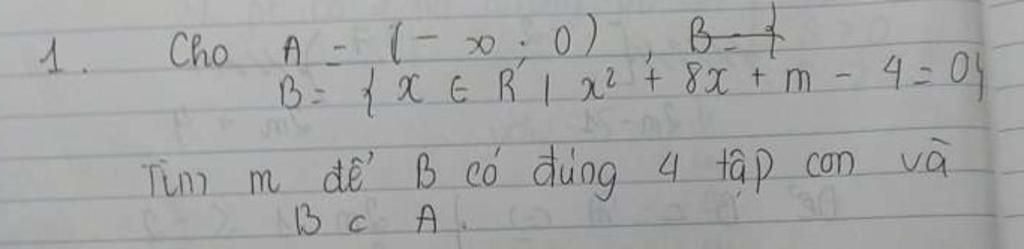 1. Cho A = (- ∞ ; 0), B = {
B = { x ∈ R | x² + 8x + m - 4 = 0}
Tìm m để B có đúng 4 tập con và
B ⊂ A.